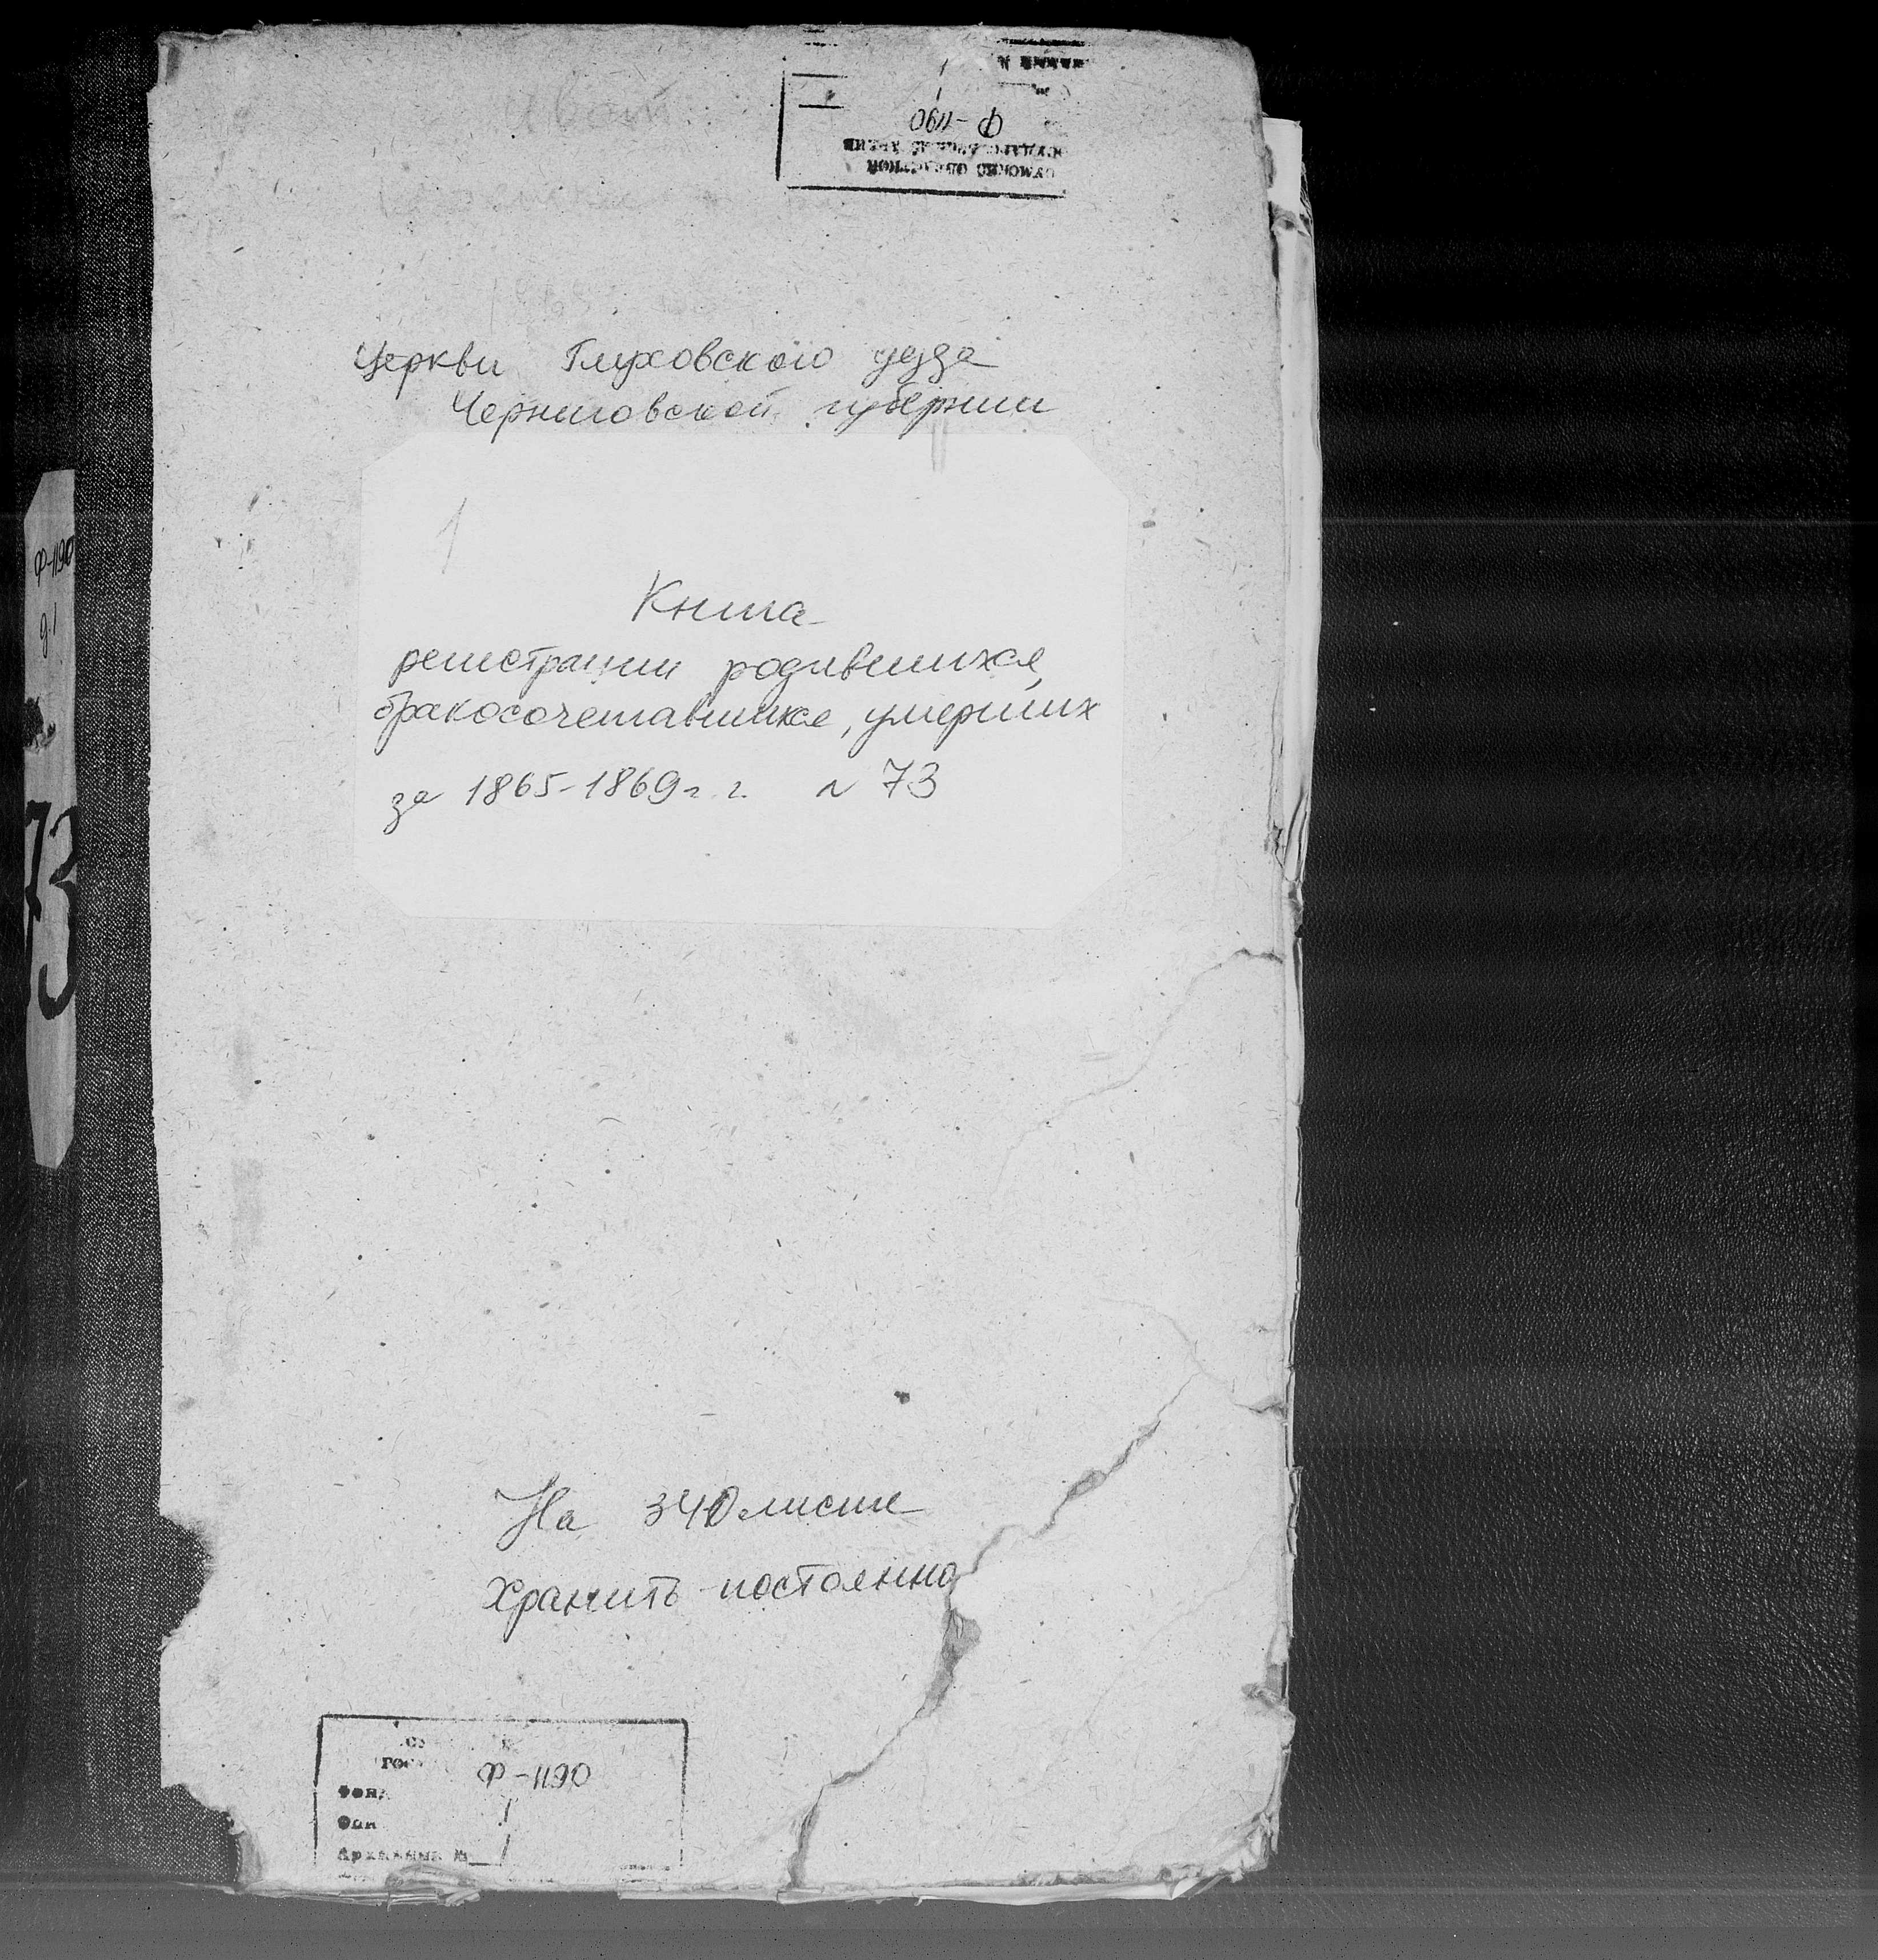 Ф-1190
Церкви Глуховского уезда
Черниговской губернии
1
Книга
регистрации родившихся,
бракосочетавшихся, умерших
за 1865-1869 г.г. N 73
Ф-1190
д.1
73
На 340 листе
Хранить постоянно
Ф-1190
1
Архивный № 1